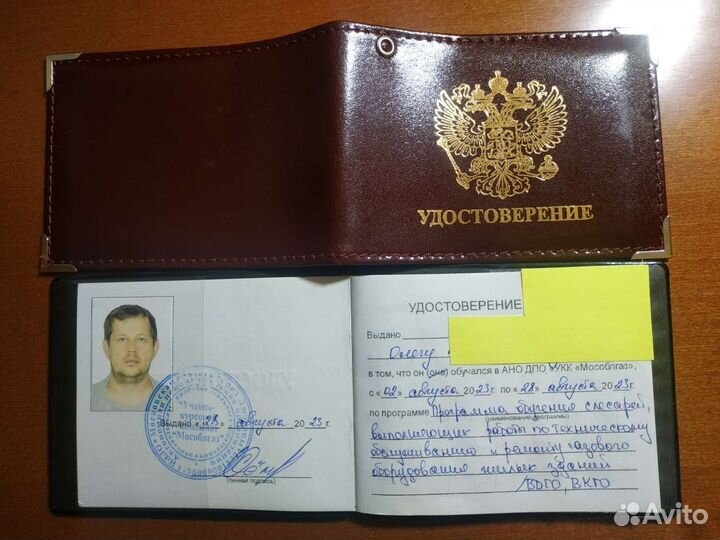 УДОСТОВЕРЕНИЕ
УДОСТОВЕРЕНИЕ
Выдано
Олегу
в том, что он (она) обучался в АНО ДПО УКК «Мособлгаз»,
с «02» августа 2023г. по «28» августа 2023г.
по программе Программа обучения слесарей,
(наименование программы)
выполняющих работы по техническому
обслуживанию и ремонту газового
оборудования жилых зданий
ВДГО, ВКГО
"Учебно-
курсовой
комбинат
"Мособлгаз"
Выдано «28» августа 2023г.
(личная подпись)
Avito